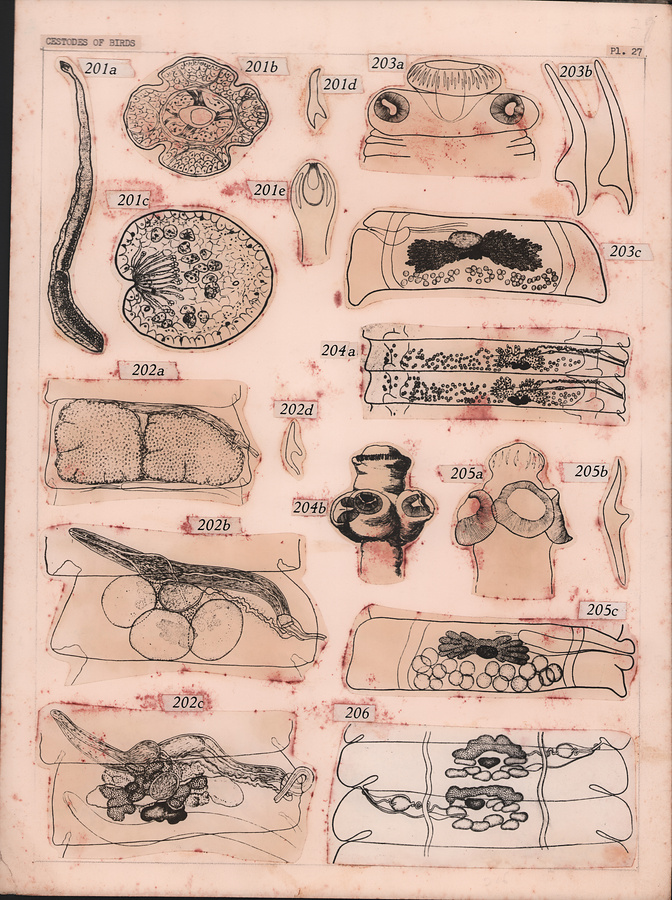 CESTODES OF BIRDS
Pl. 27
201a
201b
201d
203a
203b
201e
201c
203c
204a
202a
202d
204b
205a
205b
202b
205c
202c
206